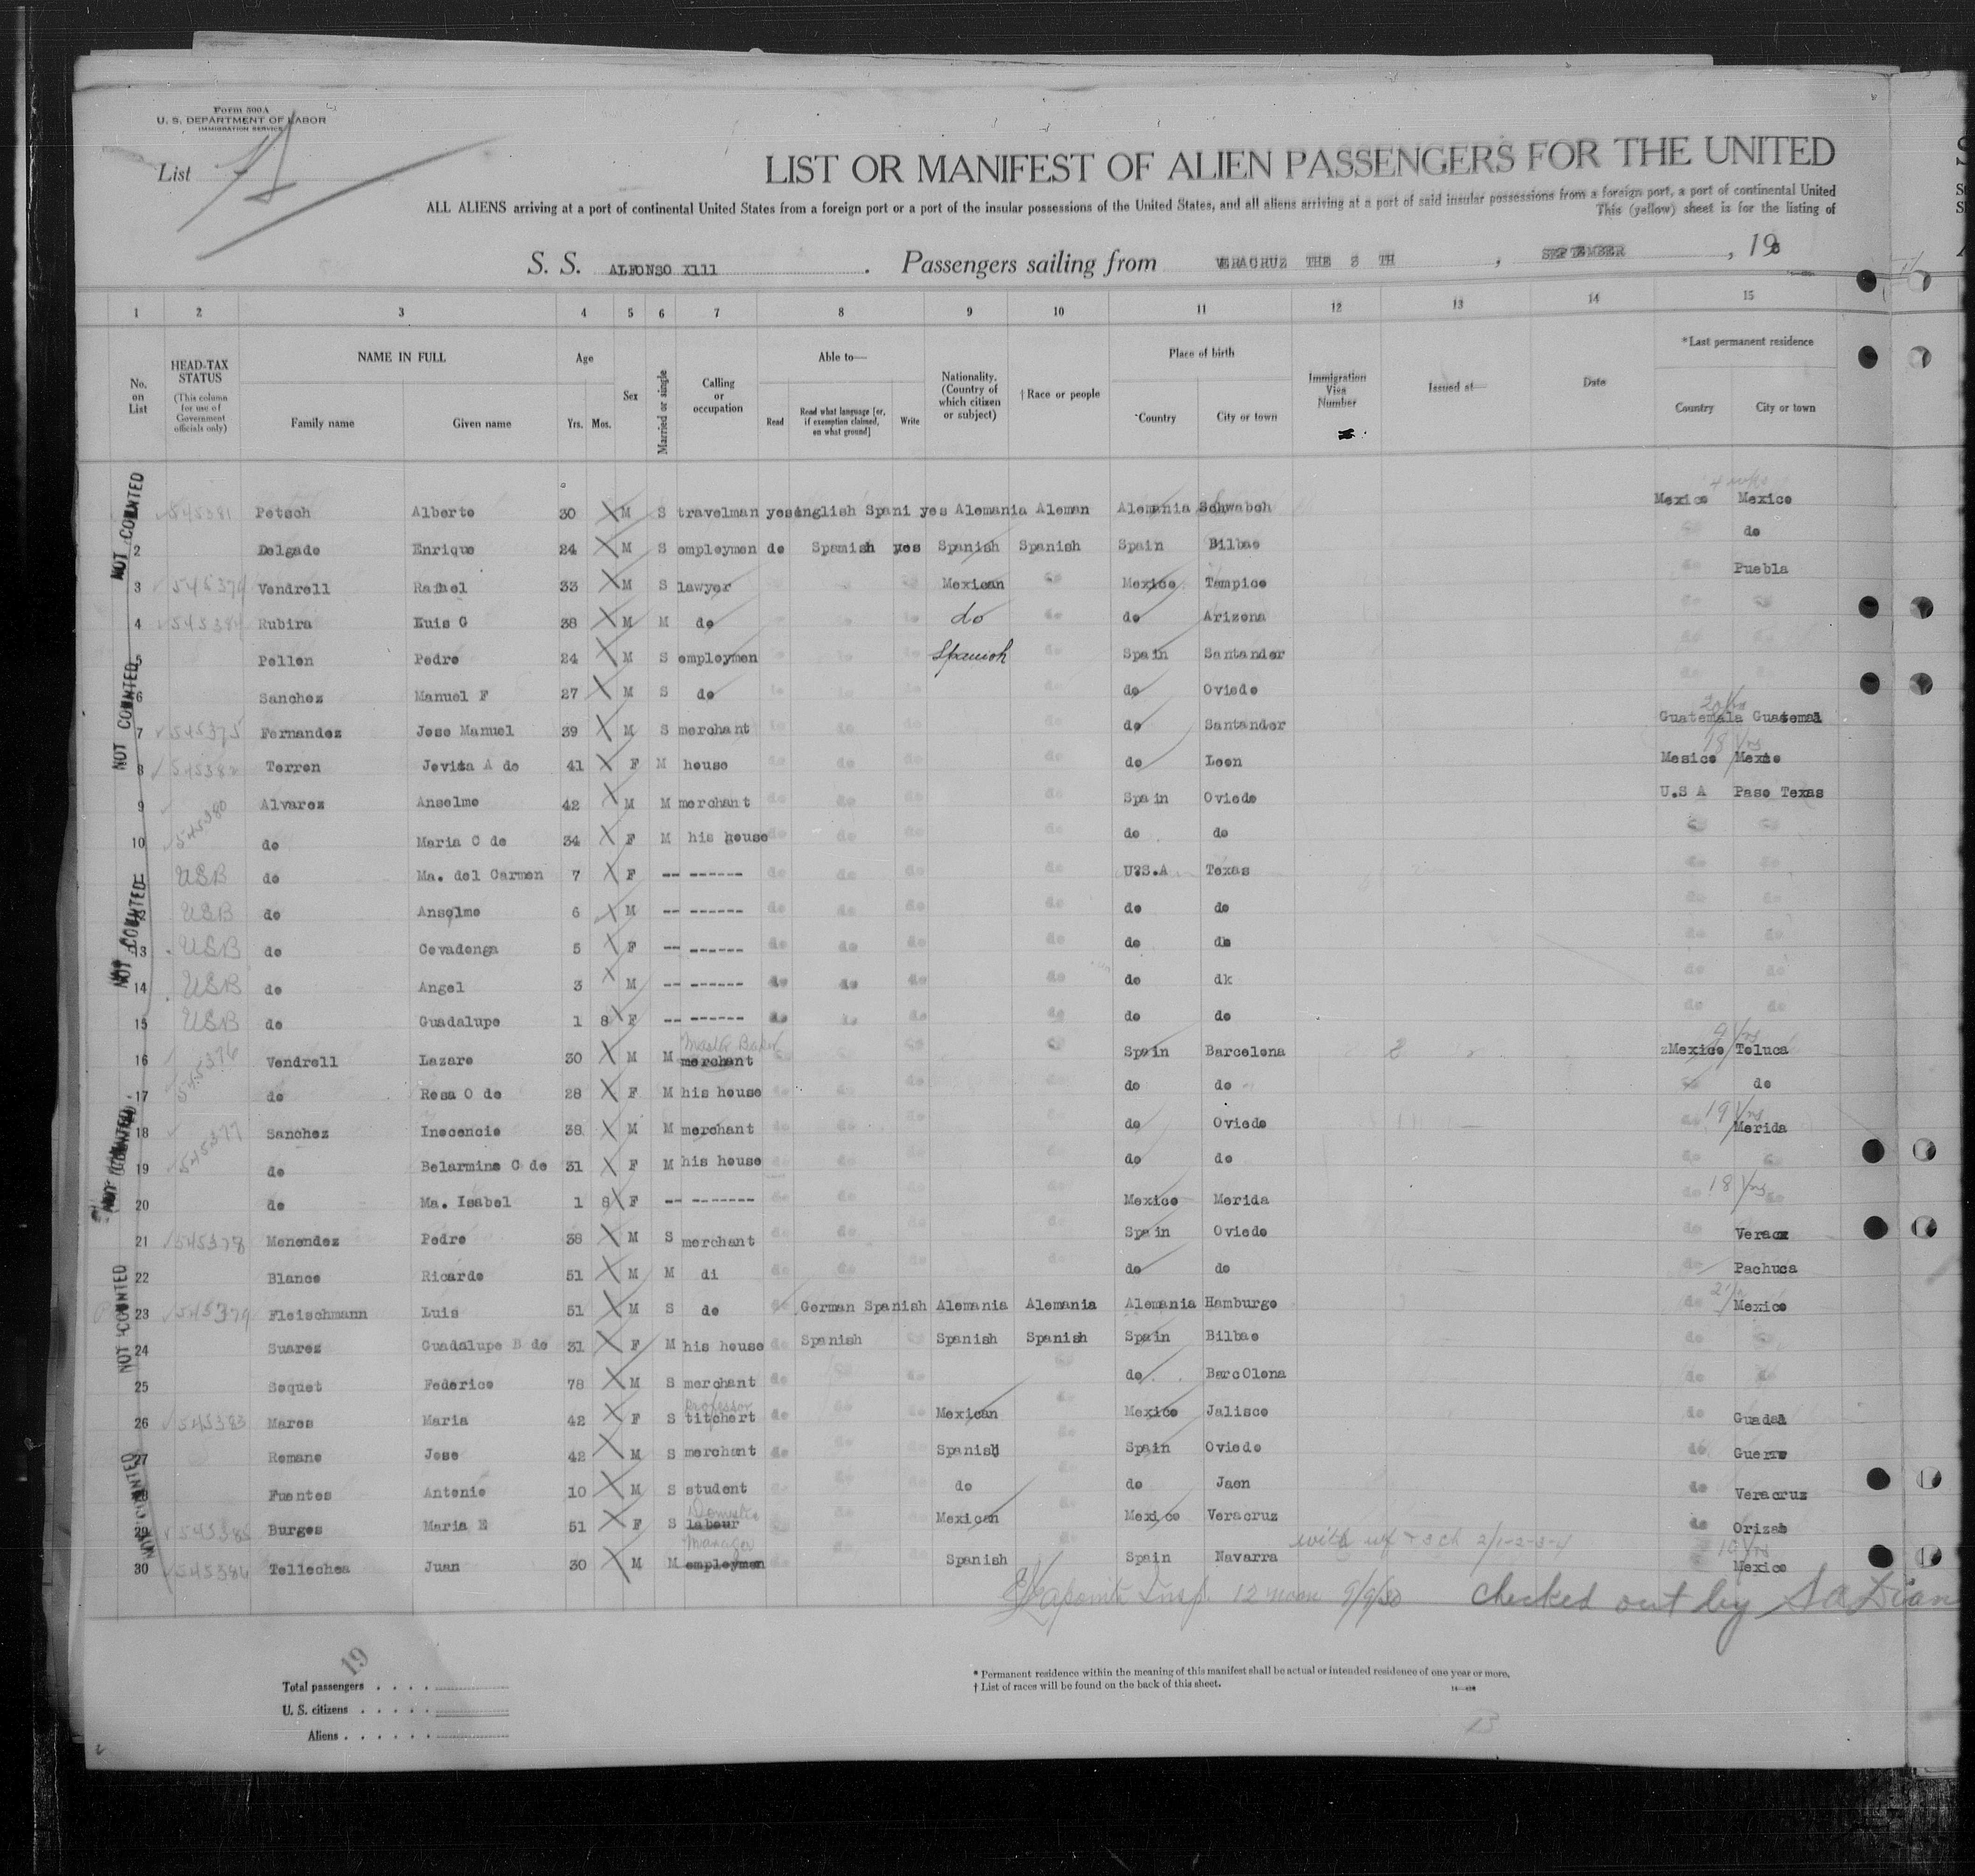 Form 500A
U. S. DEPARTMENT OF LABOR
IMMIGRATION SERVICE
List
LIST OR MANIFEST OF ALIEN PASSENGERS FOR THE UNITED
ALL ALIENS arriving at a port of continental United States from a foreign port or a port of the insular possessions of the United States, and all aliens arriving at a port of said insular possessions from a foreign port, a port of continental United
This (yellow) sheet is for the listing of
S. S. ALFONSO X111 . Passengers sailing from VERACRUZ THE TH , SEPTEMBER , 19
1 2 3 4 5 6 7 8 9 10 11 12 13 14 15
No. on List
HEAD-TAX STATUS
(This column for use of Government officials only)
NAME IN FULL
Family name Given name
Age
Yrs. Mos.
Sex
Married or single
Calling or occupation
Able to—
Read
Read what language [or, if exemption claimed, on what ground]
Write
Nationality. (Country of which citizen or subject)
† Race or people
Place of birth
Country City or town
Immigration Visa Number
Issued at—
Date
*Last permanent residence
Country City or town
545381 Petsch Alberto 30 M S travelman yes english Spani yes Alemania Aleman Alemania Schwabch Mexico Mexico
2 Delgado Enrique 24 M S employmen do Spanish yes Spanish Spanish Spain Bilbao do
3 Vendrell Rafael 33 M S lawyer Mexican Mexico Tampico Puebla
4 Rubira Luis G 38 M M do do do Arizona
5 Pellon Pedro 24 M S employmen Spanish Spain Santander
6 Sanchez Manuel F 27 M S do do Oviedo
7 545375 Fernandez Jose Manuel 39 M S merchant do Santander Guatemala Guatemal
8 545382 Terren Jovita A de 41 F M house do Leon Mesico 18 yrs
9 Alvarez Anselmo 42 M M merchant Spain Oviedo U.S A Paso Texas
10 545380 do Maria C de 34 F M his house do do
USB do Ma. del Carmen 7 F -- ------ U.S.A Texas
USB do Anselmo 6 M -- ------ do do
13 USB do Covadonga 5 F -- ------ do
14 USB do Angel 3 M -- ------ do dk
15 USB do Guadalupe 1 8 F -- ------ do do
16 545376 Vendrell Lazaro 30 M M merchant Master Baker Spain Barcelona Mexico Toluca 9 yrs
17 do Rosa O de 28 F M his house do do do
18 545377 Sanchez Inocencio 38 M M merchant do Oviedo 19 yrs Merida
19 do Belarmina C de 31 F M his house do do
20 do Ma. Isabel 1 8 F -- ------- Mexico Merida 18 yrs
21 545378 Menendez Pedro 38 M S merchant Spain Oviedo
22 Blanco Ricardo 51 M M di do do Pachuca
23 545379 Fleischmann Luis 51 M S do German Spanish Alemania Alemania Alemania Hamburgo Mexico
24 Suarez Guadalupe B de 31 F M his house do Spanish Spanish Spanish Spain Bilbao do
25 Soquet Federico 78 M S merchant do do BarcOlona do
26 545383 Mares Maria 42 F S titchert professor do Mexican Mexico Jalisco do
27 Romano Jose 42 M S merchant Spanish Spain Oviedo do
28 Fuentes Antonio 10 M S student do do Jaen do Veracruz
29 545385 Burges Maria E 51 F S labour Domestic Mexican Mexico Veracruz do Orizab
30 Tellechea Juan 30 M M employmen Manager Spanish Spain Navarra with wf + 3 ch 2/1-2-3-4 10 yrs Mexico
NOT COUNTED
NOT COUNTED
NOT COUNTED
NOT COUNTED
NOT COUNTED
NOT COUNTED
Insp. 12 noon 9/9/30 checked out by
19
Total passengers
U. S. citizens
Aliens
* Permanent residence within the meaning of this manifest shall be actual or intended residence of one year or more.
† List of races will be found on the back of this sheet.
13